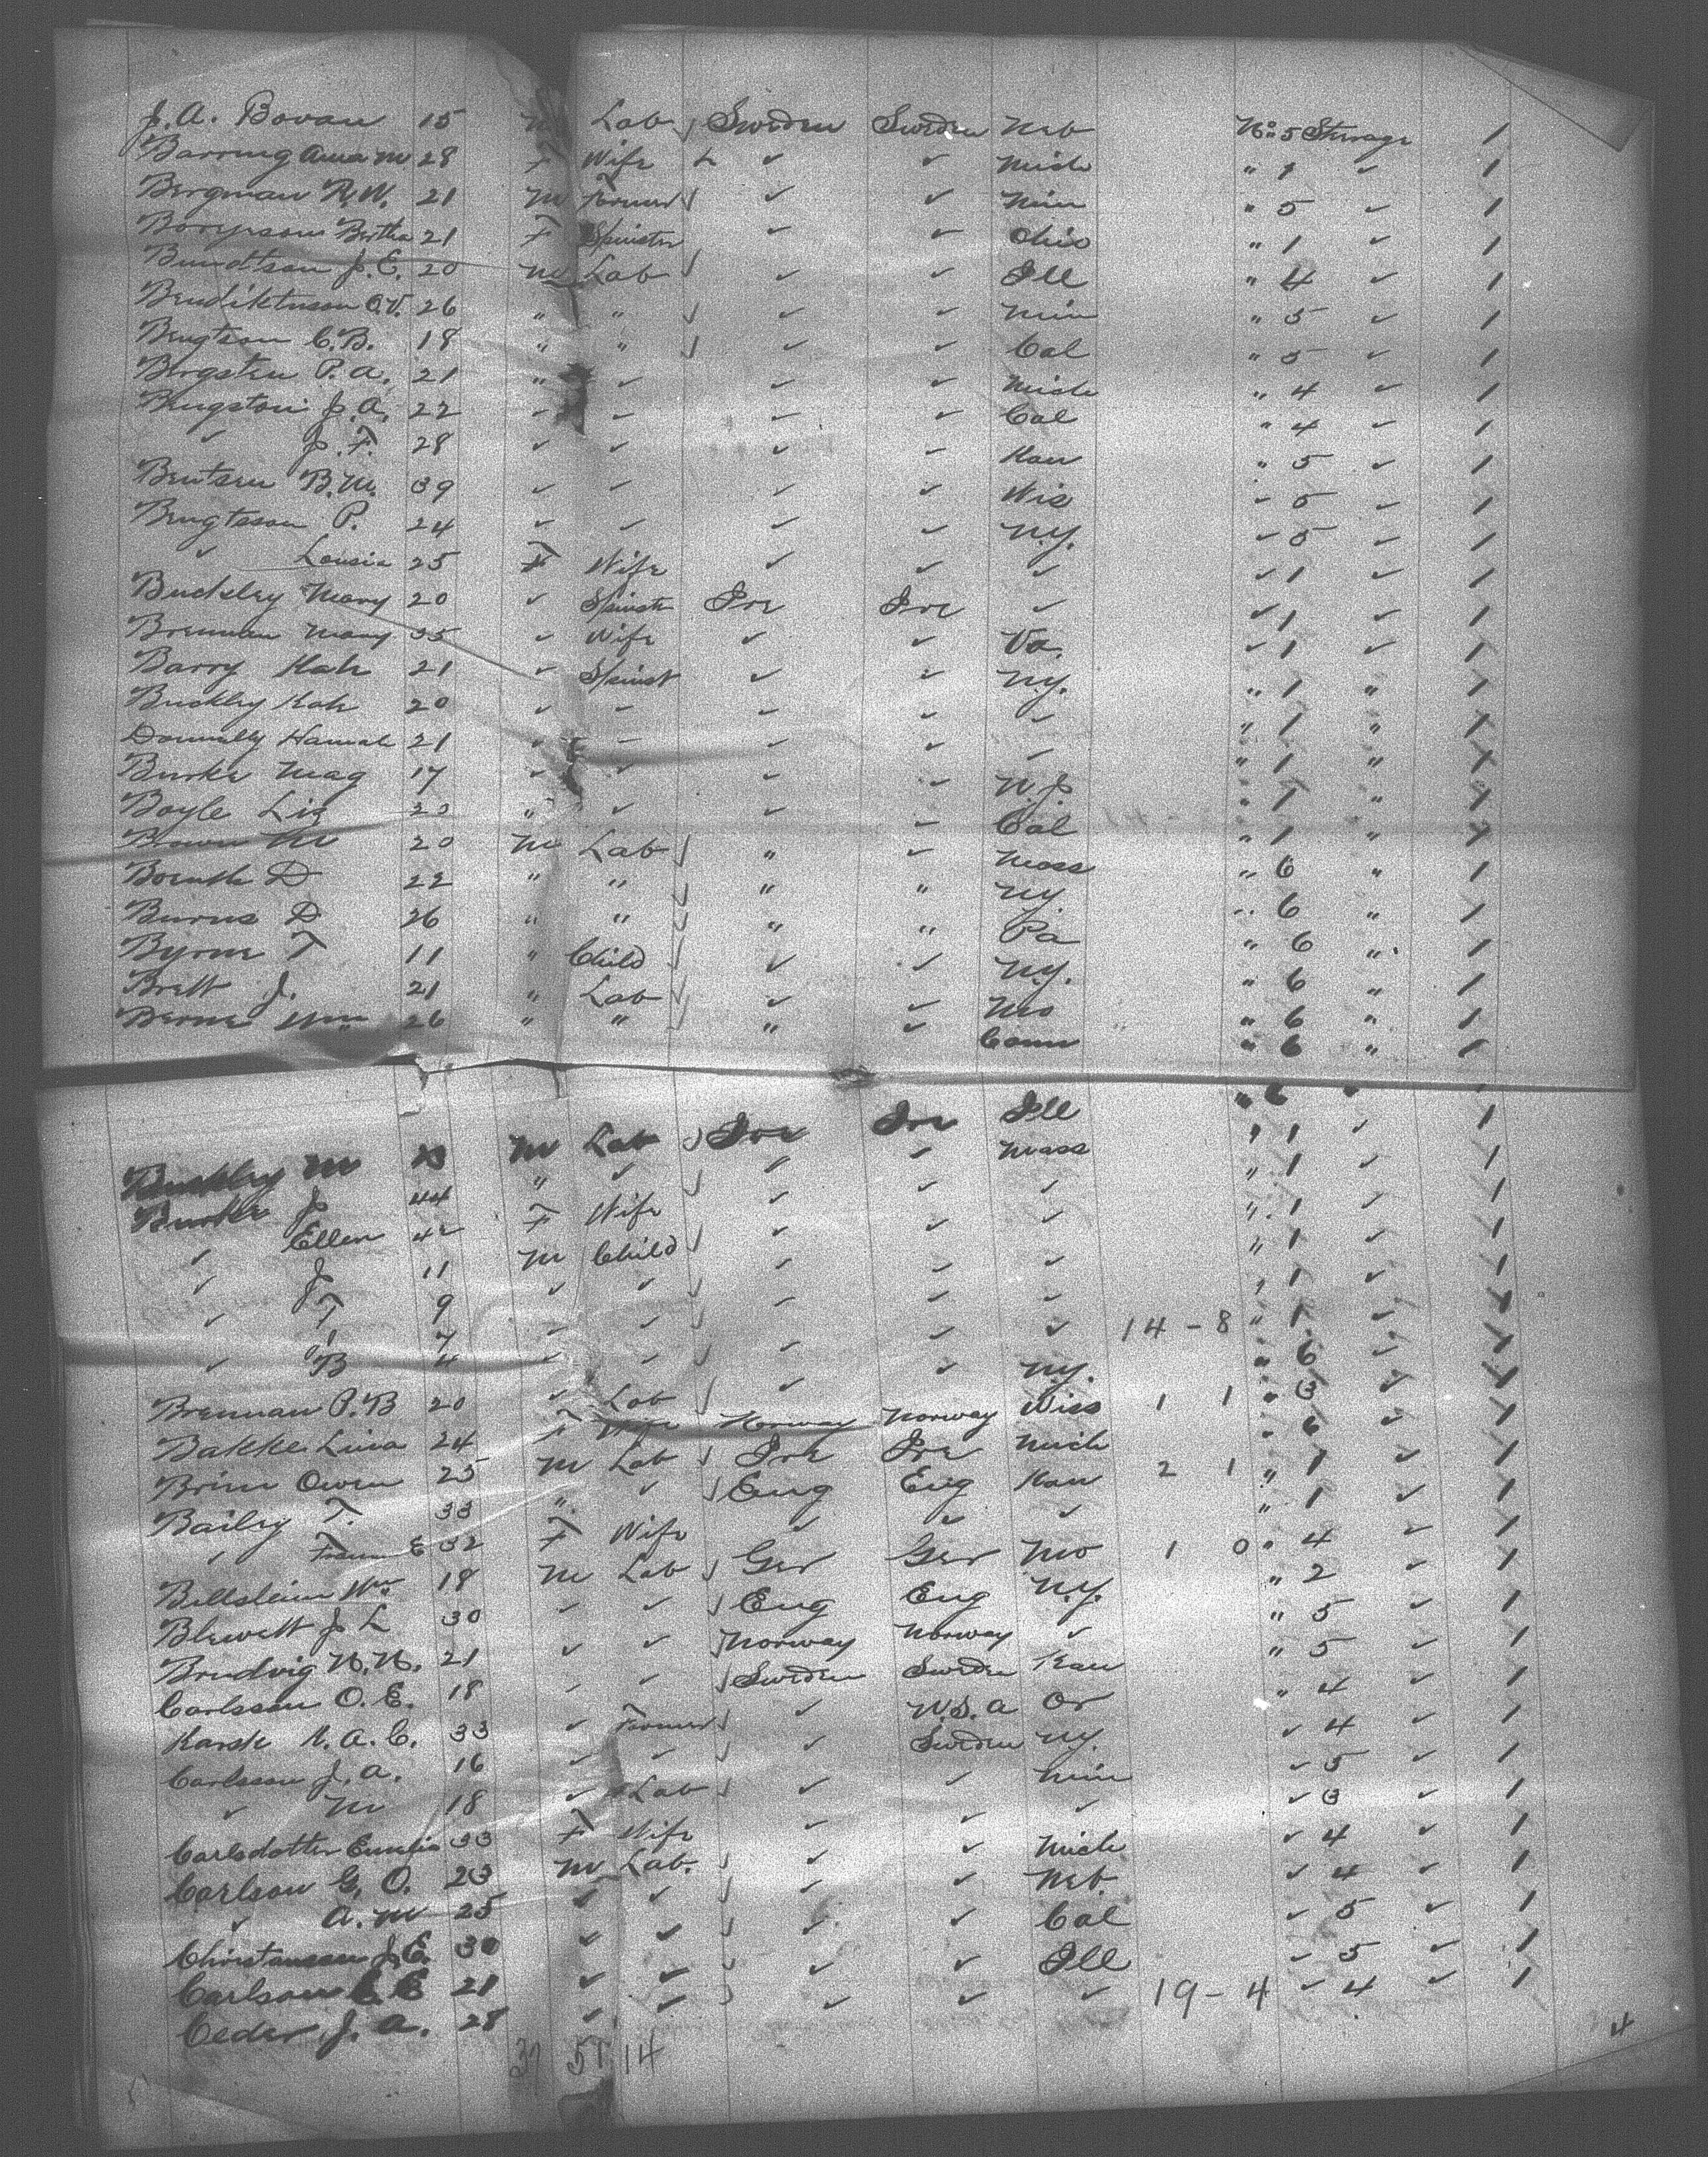 J. A. Bovan 15 M Lab Sweden Sweden Neb No 5 Steerage 1
Barring Anna M 28 F Wife ✓ ✓ Mich " 1 ✓ 1
Bergman N. W. 21 M Farmer ✓ ✓ Min " 5 ✓ 1
Bertha 21 F Spinster ✓ ✓ Ohio " 1 ✓ 1
J. E. 20 M Lab ✓ ✓ Ill " 4 ✓ 1
O. V. 26 " " ✓ ✓ Min " 5 ✓ 1
Bengtson C. B. 18 " " ✓ ✓ Cal " 5 ✓ 1
Bergsten P. A. 21 " ✓ ✓ ✓ Mich " 4 ✓ 1
Bengston J. A. 22 ✓ ✓ ✓ ✓ Cal " 4 ✓ 1
✓ J. F. 28 ✓ ✓ ✓ ✓ Kan " 5 ✓ 1
Bentsen B. M. 39 ✓ ✓ ✓ ✓ Wis ✓ 5 ✓ 1
Bengtsson P. 24 ✓ ✓ ✓ ✓ N.Y. ✓ 5 ✓ 1
✓ Lousia 25 F Wife ✓ ✓ ✓ ✓ 1 ✓ 1
Buckley Mary 20 ✓ Spinst Ire Ire ✓ ✓ 1 ✓ 1
Brennan Mary 35 ✓ Wife ✓ ✓ Va. ✓ 1 ✓ 1
Barry Kate 21 ✓ Spinst ✓ ✓ N.Y. " 1 " 1
Buckley Kate 20 ✓ ✓ ✓ ✓ ✓ " 1 " 1
Donnelly Hannah 21 ✓ ✓ ✓ ✓ ✓ " 1 " 1
Burke Mag 17 ✓ ✓ ✓ ✓ N.J. " 1 " 1
Boyle Liz 20 " ✓ ✓ ✓ Cal " 1 " 1
Brown M 20 M Lab " ✓ Mass " 6 " 1
D 22 " " " " N.Y. " 6 " 1
Burns D 26 " " " " Pa " 6 " 1
Byrne T 11 " Child ✓ ✓ N.Y. " 6 " 1
Brett J. 21 " Lab ✓ ✓ Mo " 6 " 1
Berne Wm 26 " " " ✓ Conn " 6 " 1
Buckley M M Lab Ire Ire Ill " 6 " 1
Burke J 44 " ✓ ✓ ✓ Mass " 1 ✓ 1
✓ Ellen 42 F Wife ✓ ✓ ✓ " 1 ✓ 1
✓ J 11 M Child ✓ ✓ ✓ " 1 ✓ 1
✓ T 9 ✓ ✓ ✓ ✓ ✓ " 1 ✓ 1
7 ✓ ✓ ✓ ✓ ✓ " 1 ✓ 1
✓ B 4 ✓ ✓ ✓ ✓ ✓ 14 - 8 " 1 ✓ 1
Brennan P. B 20 ✓ Lab ✓ ✓ N.Y. " 6 ✓ 1
Bakke Lina 24 F Wife Norway Norway Wiss 1 1 " 3 ✓ 1
Brim Owen 25 M Lab Ire Ire Mich " 6 ✓ 1
Bailey T. 33 " ✓ Eng Eng Kan 2 1 " 1 ✓ 1
✓ E 32 F Wife ✓ ✓ ✓ " 1 ✓ 1
Billslein Wm 18 M Lab Ger Ger Mo 1 0 " 4 ✓ 1
Blewett J L 30 ✓ ✓ Eng Eng N.Y. " 2 ✓ 1
Brudvig N. N. 21 ✓ ✓ Norway Norway ✓ " 5 ✓ 1
Carlsson O. E. 18 ✓ ✓ Sweden Sweden Kan " 5 ✓ 1
Karsk K. A. C. 33 ✓ Farmer ✓ U.S.A Or " 4 ✓ 1
Carlsson J. A. 16 ✓ ✓ ✓ Sweden N.Y. ✓ 4 ✓ 1
✓ M 18 ✓ Lab ✓ ✓ Min ✓ 5 ✓ 1
Carlsdotter Emelia 33 F Wife ✓ ✓ ✓ ✓ 3 1
Carlson G. O. 23 M Lab. ✓ ✓ Mich ✓ 4 ✓ 1
✓ A. M 25 ✓ ✓ ✓ ✓ Neb. ✓ 4 ✓ 1
Christansen J. E. 30 ✓ ✓ ✓ ✓ Cal ✓ 5 ✓ 1
Carlson 21 ✓ ✓ ✓ ✓ Ill ✓ 5 ✓ 1
Ceder J. A. 28 ✓ ✓ ✓ ✓ ✓ 19 - 4 ✓ 4 ✓ 1
37 51 14
4